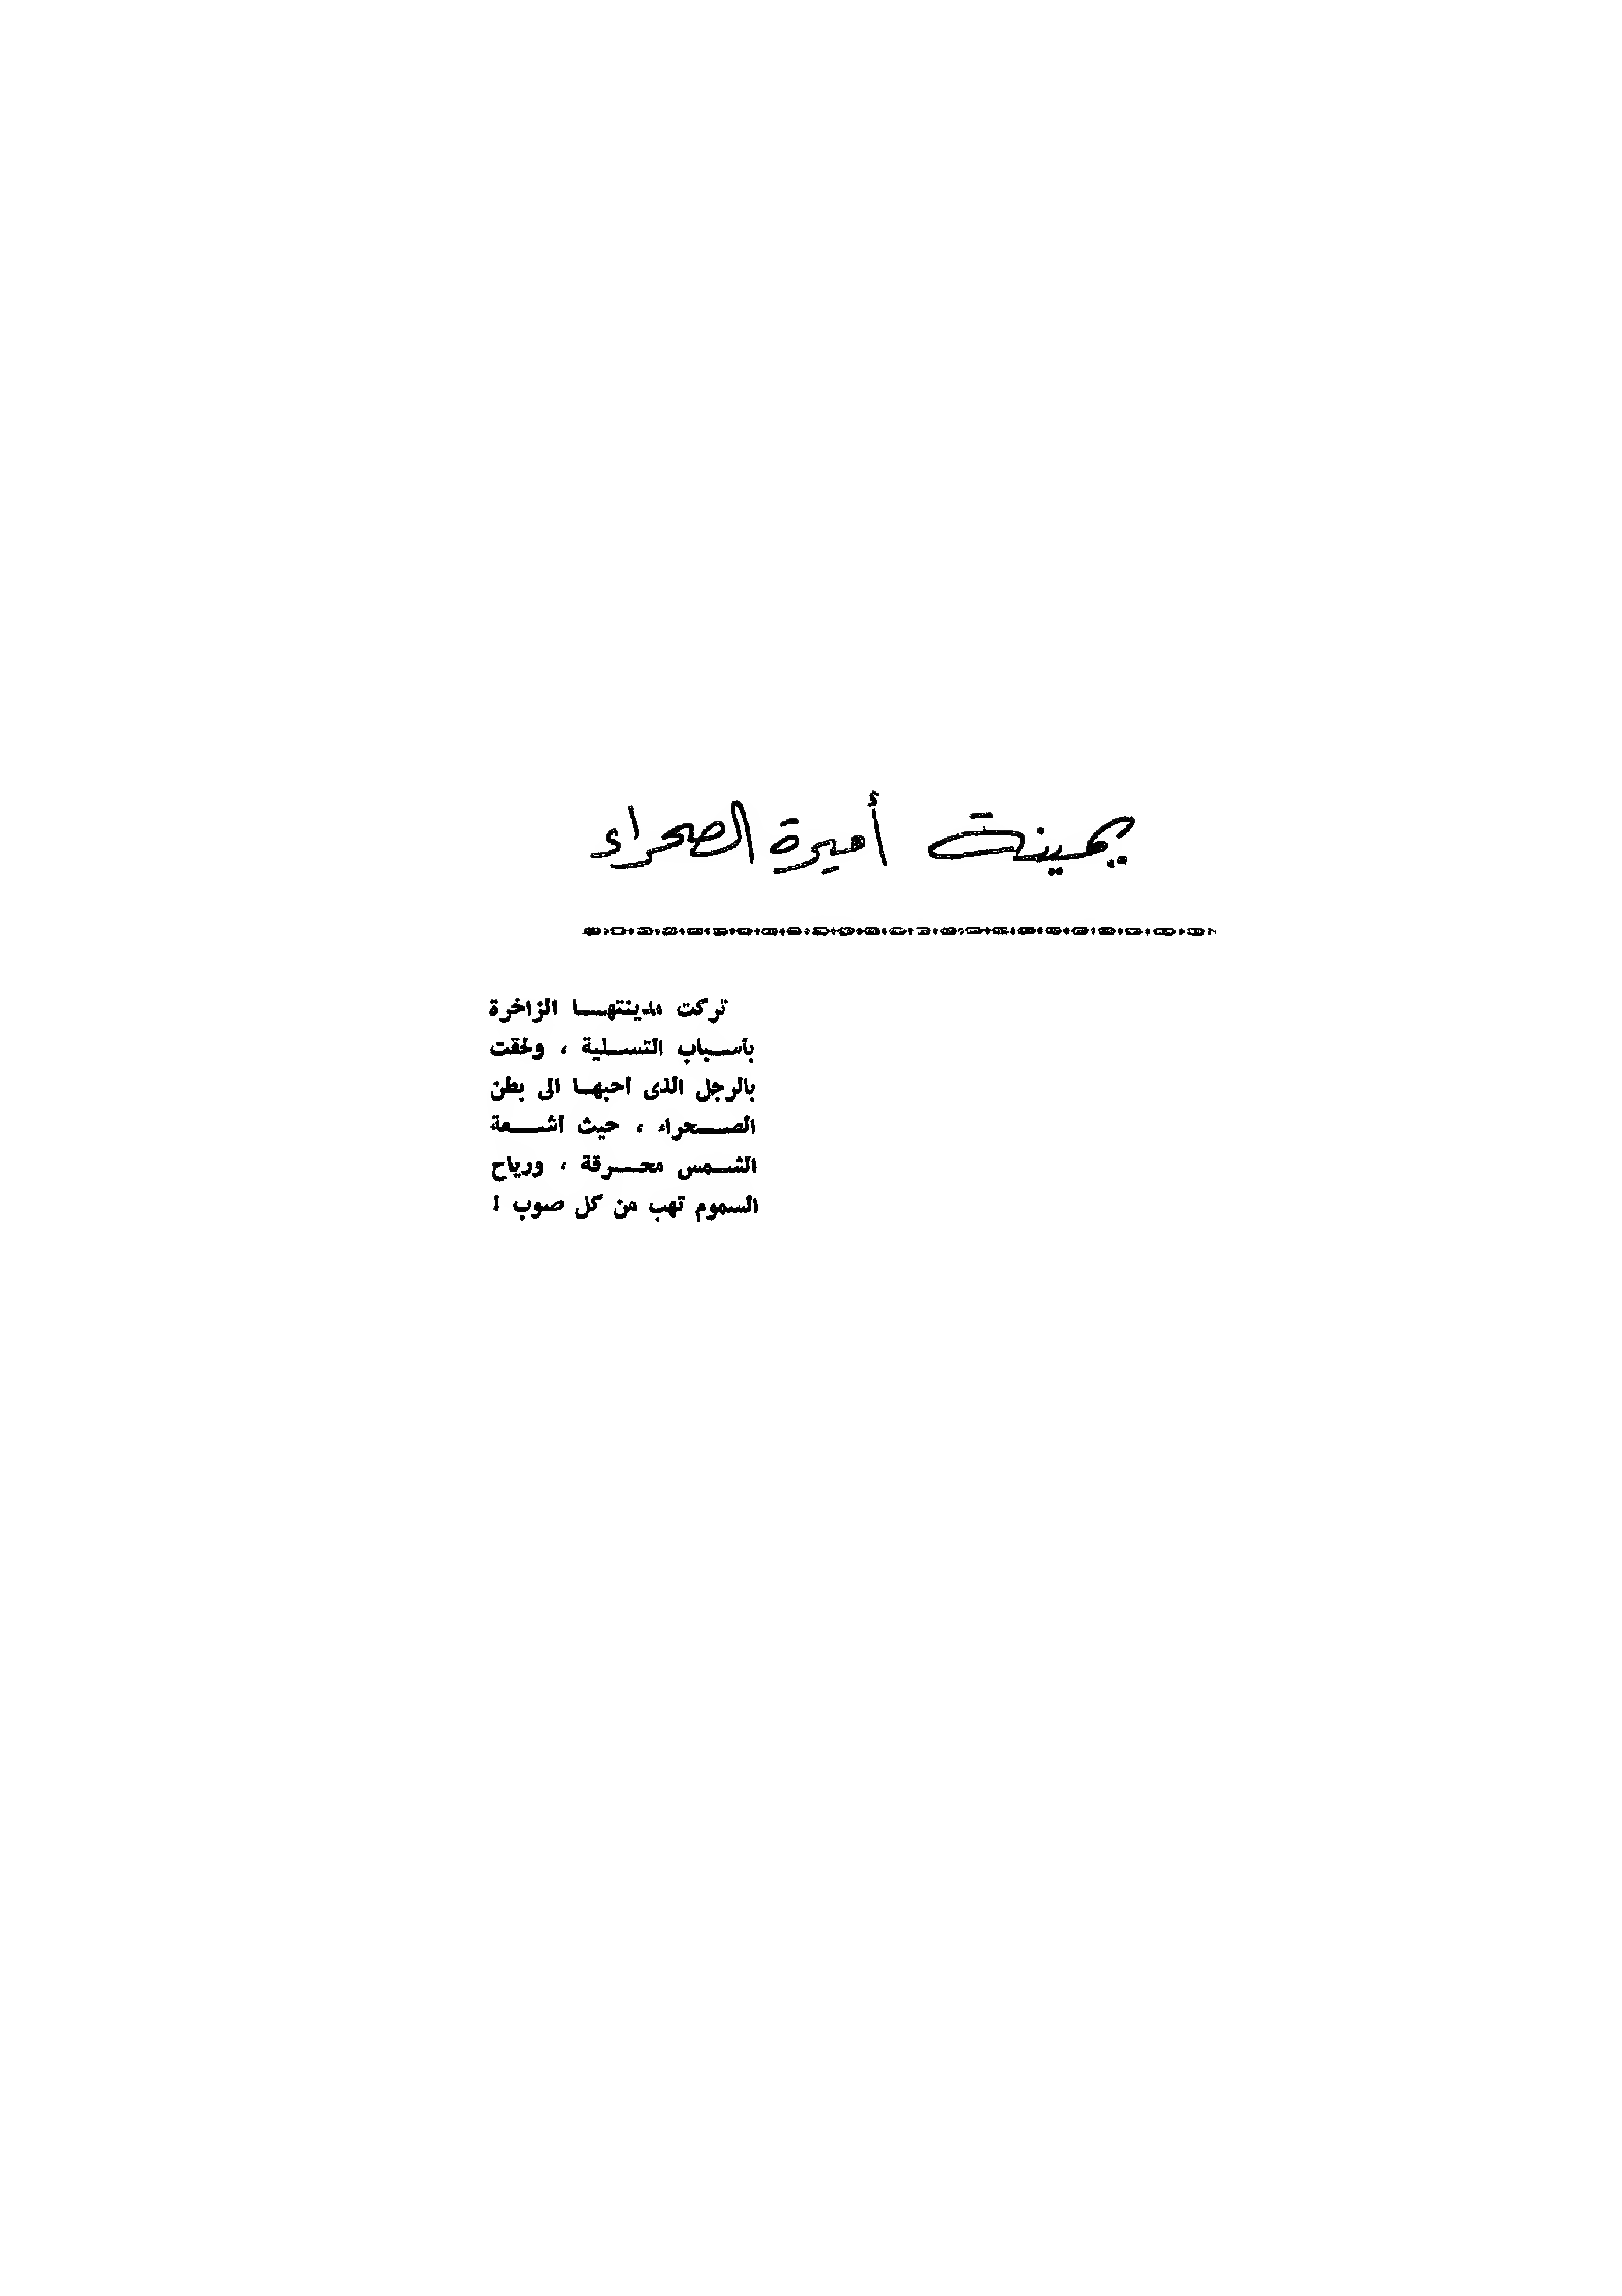 يمينة أميرة الصحراء
تركت مدينتهــا الزاخرة
بأســباب التســلية ، ولحقت
بالرجل الذى أحبهــا الى بطن
الصــحراء ، حيث أشــعة
الشــمس محــرقة ، ورياح
السموم تهب من كل صوب !